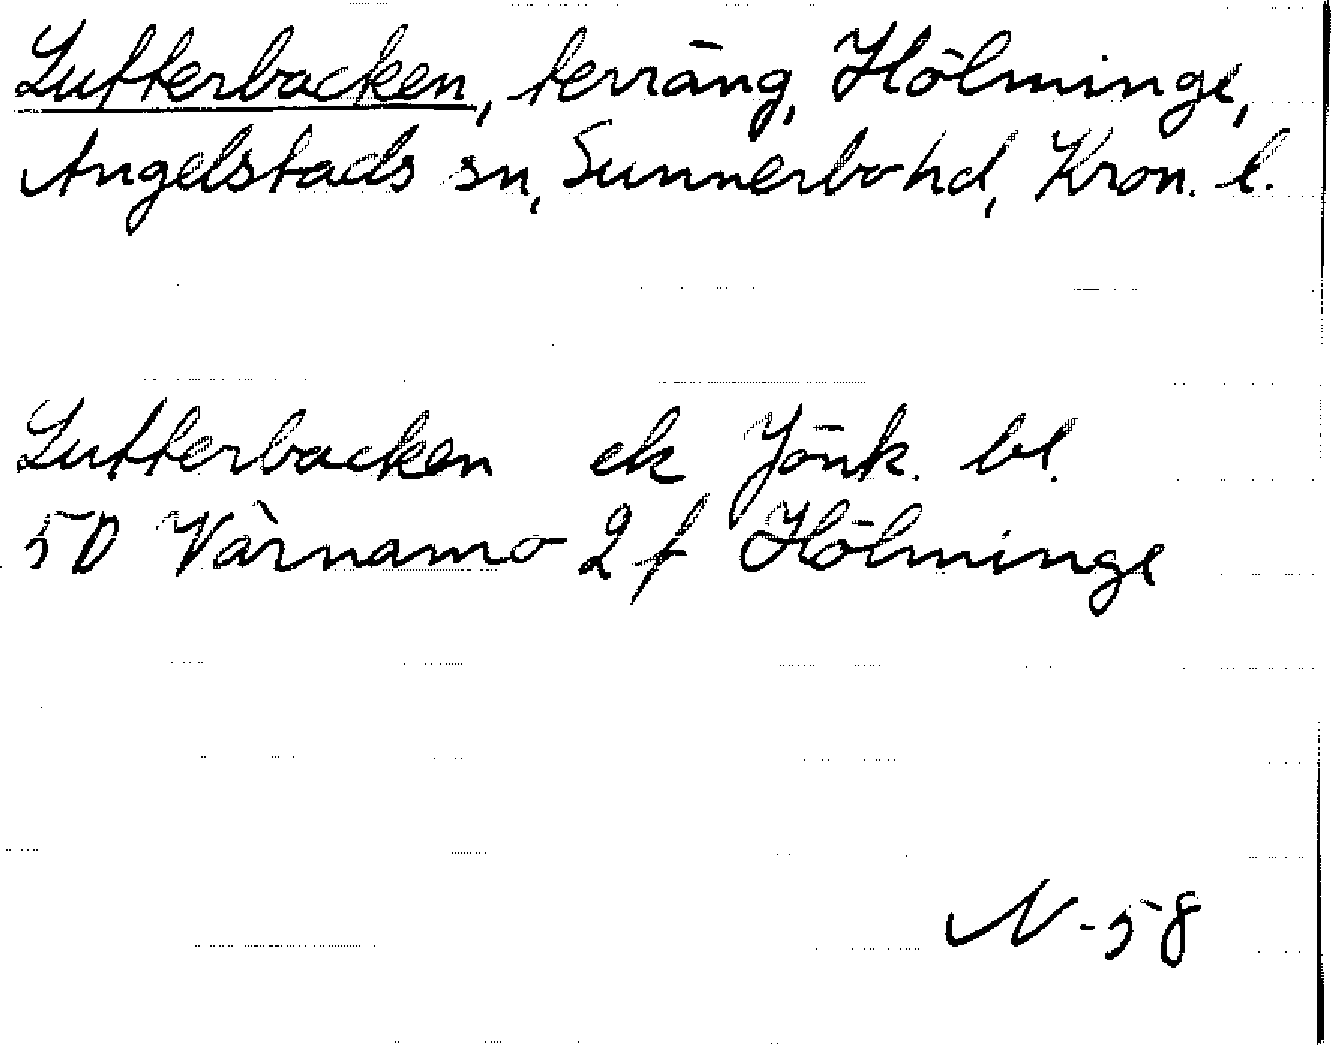 Lufterbacken, terräng, Hölminge,
Angelstads sn, Sunnerbo hd, Kron. l.
Lufterbacken ek Jönk. bl.
5D Värnamo 2 f Hölminge
N-58